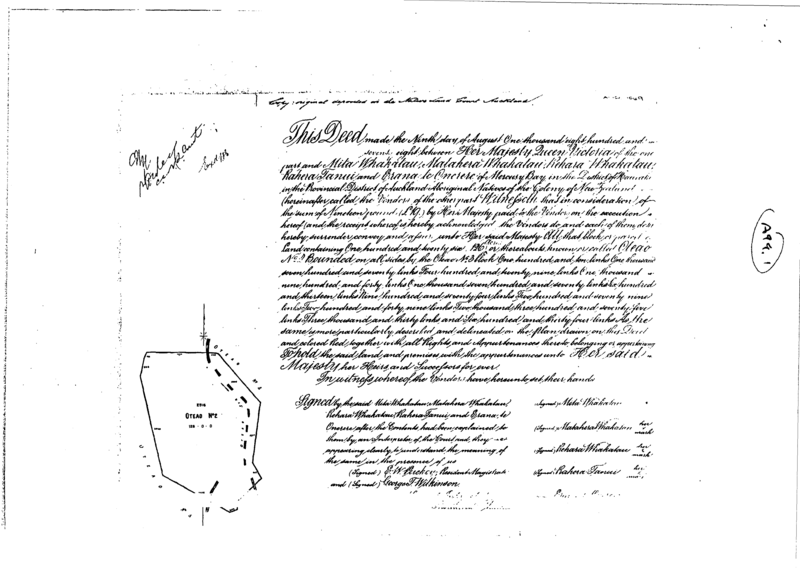 Copy: original deposited in the Native Land Court Auckland.
A99.1
This Deed made the Ninth day of August One thousand eight hundred and
seventy eight between Her Majesty Queen Victoria of the one
part and Mita Whakatau, Matahera Whakatau, Rehara Whakatau,
Rahera Tanui and Erana te Onerere of Mercury Bay in the District of Hauraki
in the Provincial District of Auckland Aboriginal Natives of the Colony of New Zealand
(hereinafter called the Vendors) of the other part Witnesseth that in consideration of
the sum of Nineteen pounds (£19) by Her Majesty paid to the Vendors on the execution
hereof (and the receipt whereof is hereby acknowledged) the Vendors do and each of them doth
hereby surrender convey and assure unto Her said Majesty All that block or parcel of
Land containing One hundred and twenty six 126 or thereabouts known or called Oteao
No. 2 Bounded on all sides by the Oteao No 3 Block One hundred and ten links One thousand
seven hundred and seventy links Four hundred and twenty nine links One thousand
nine hundred and forty links One thousand seven hundred and seventy links hundred
and thirteen links Nine hundred and seventy four links Two hundred and seventy nine
links Two hundred and forty nine links Two thousand three hundred and seventy five
links Three thousand and thirty links and Six hundred and thirty four links As the
same is more particularly described and delineated on the Plan drawn on this Deed
and colored Red together with all Rights and Appurtenances thereto belonging or appertaining
To hold the said land and premises with the appurtenances unto Her said
Majesty her Heirs and Successors for ever
In witness whereof the Vendors have hereunto set their hands
Signed by the said Mita Whakatau Matahera Whakatau,
Rehara Whakatau, Rahera Tanui and Erana te
Onerere after the Contents had been explained to
them by an Interpreter of the Court and they
appearing clearly to understand the meaning of
the same in the presence of us
(Signed) Resident Magistrate
and (Signed) George T Wilkinson
(Signed) Mita Whakatau
(Signed) Matahera Whakatau her mark
(Signed) Rehara Whakatau her mark
(Signed) Rahera Tanui her mark
OTEAO No 2